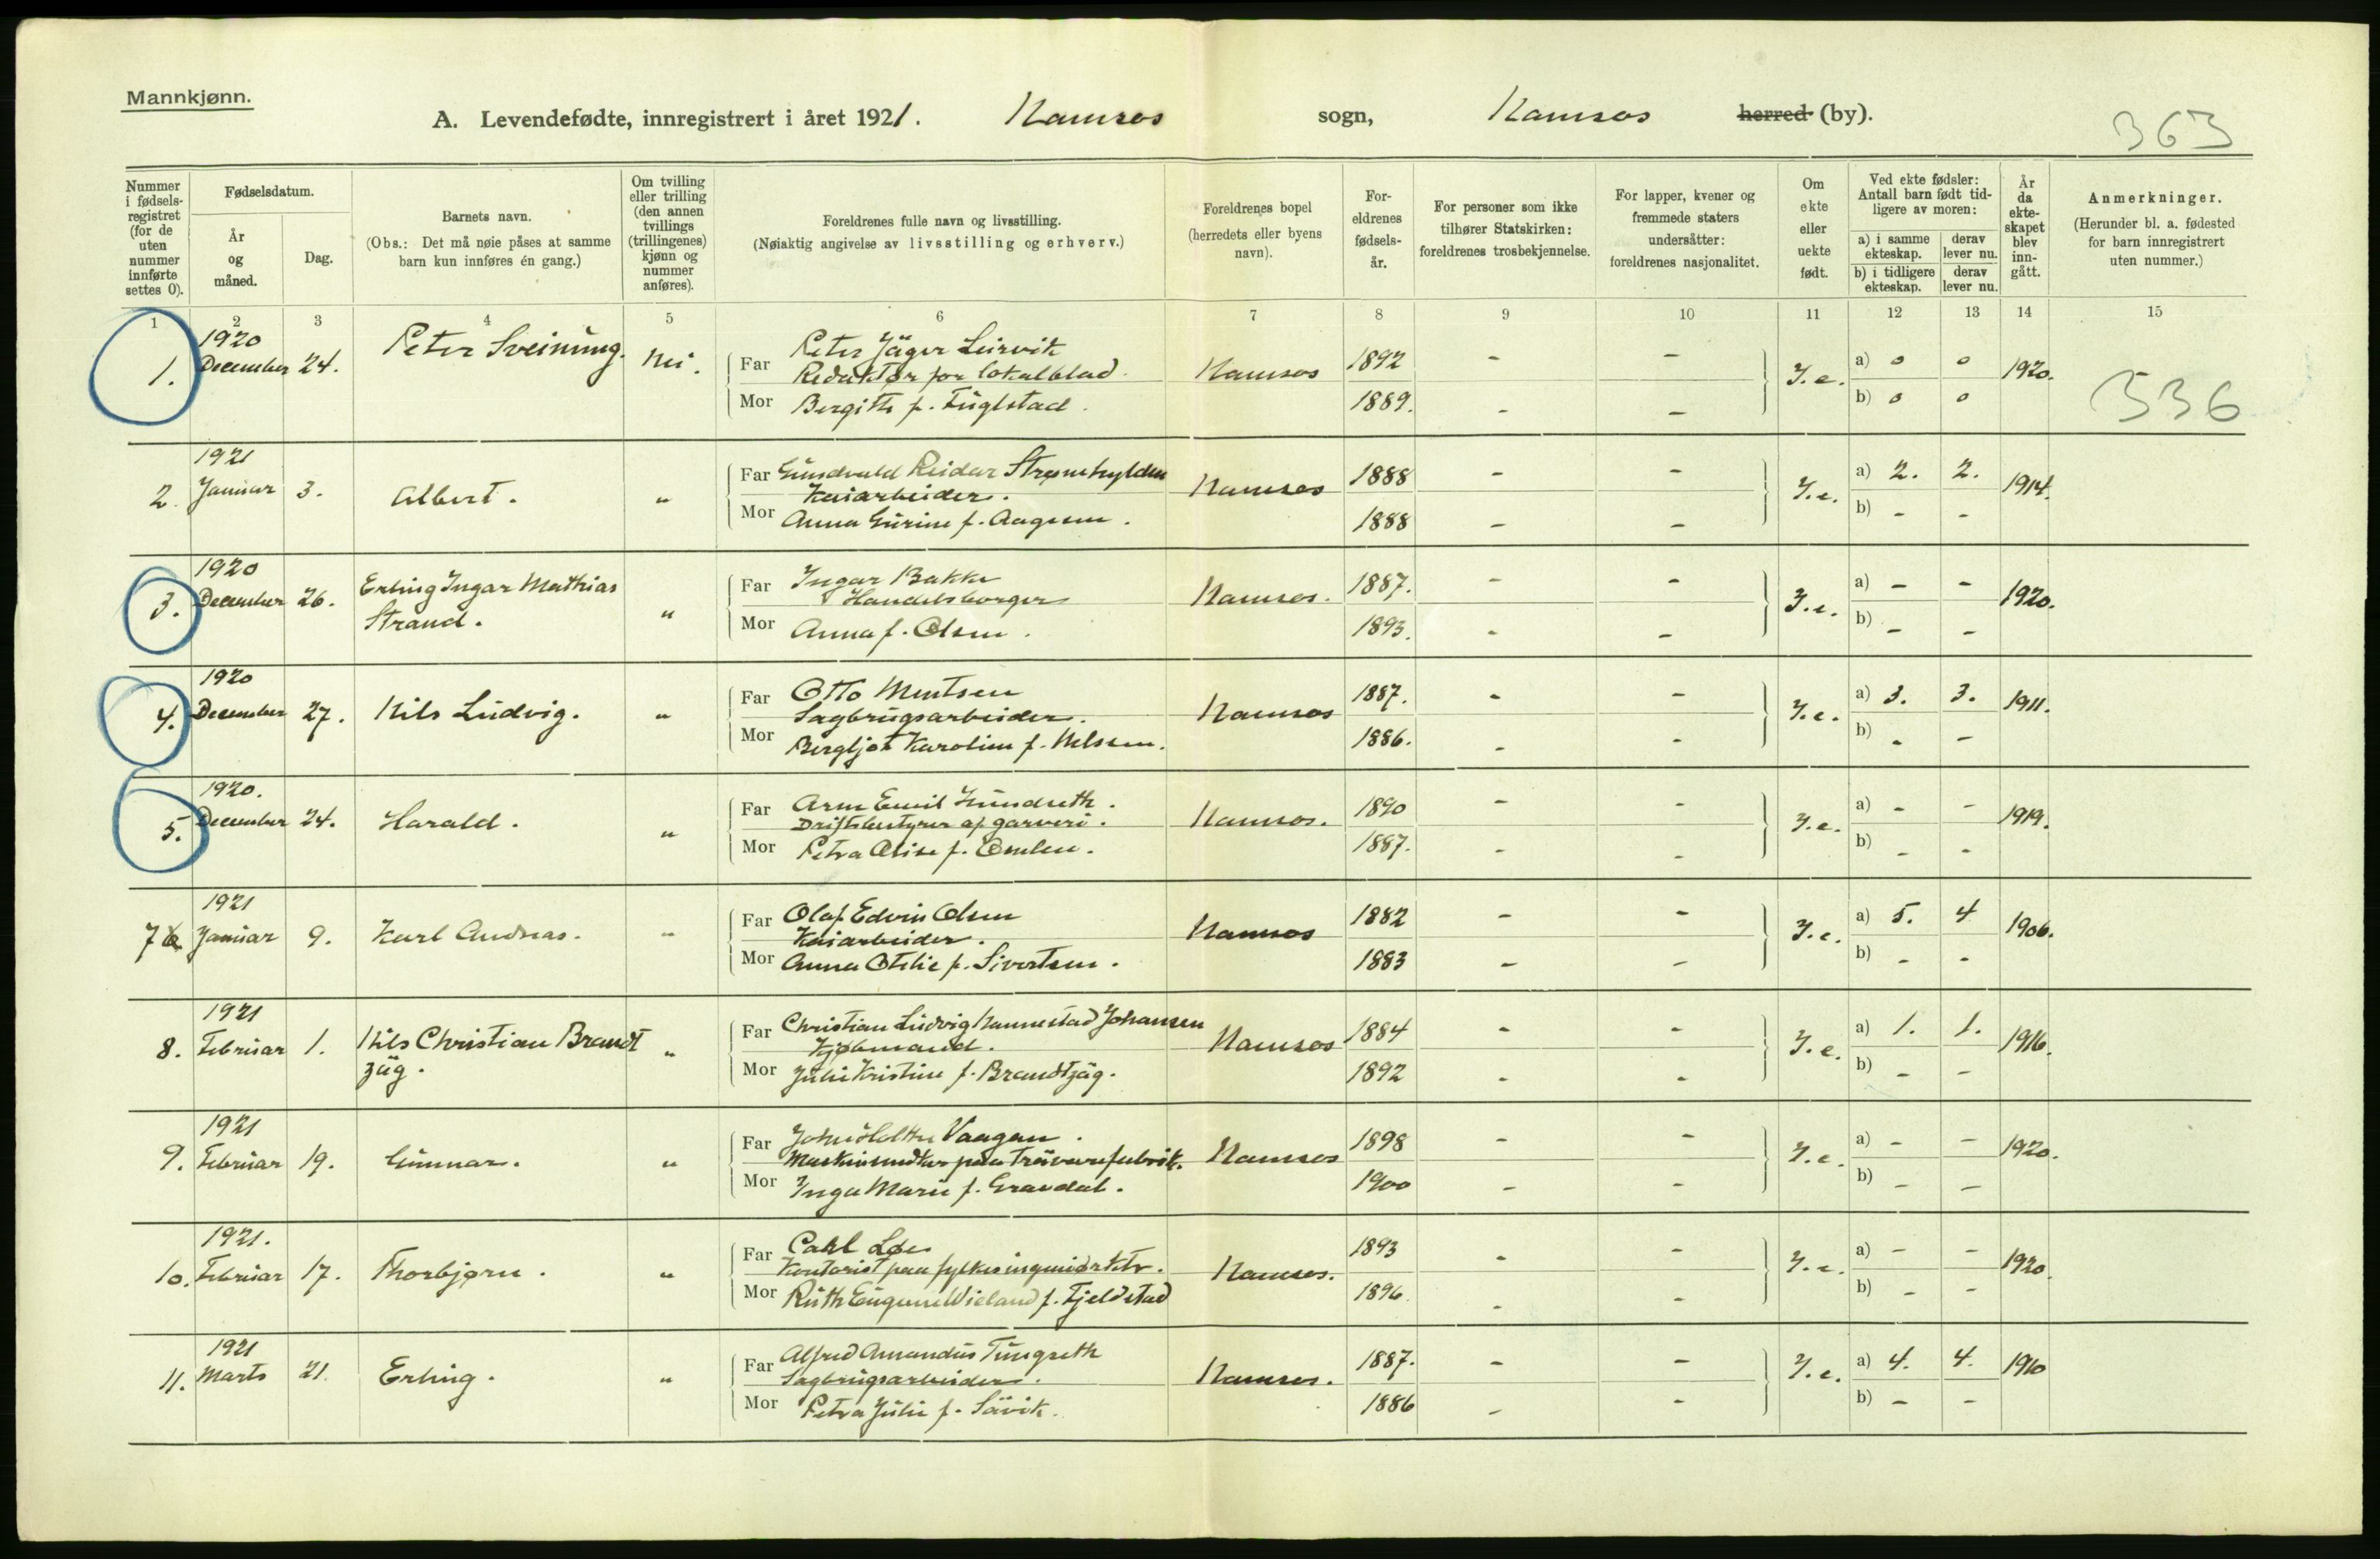 Mannkjønn.
A. Levendefødte, innregistrert i året 1921. Namsos sogn, Namsos herred (by).
363
Nummer i fødselsregistret (for de uten nummer innførte settes 0).
Fødselsdatum.
År og måned.
Dag.
Barnets navn.
(Obs.: Det må nøie påses at samme barn kun innføres én gang.)
Om tvilling eller trilling (den annen tvillings (trillingenes) kjønn og nummer anføres).
Foreldrenes fulle navn og livsstilling.
(Nøiaktig angivelse av livsstilling og erhverv.)
Foreldrenes bopel (herredets eller byens navn).
Foreldrenes fødselsår.
For personer som ikke tilhører Statskirken: foreldrenes trosbekjennelse.
For lapper, kvener og fremmede staters undersåtter: foreldrenes nasjonalitet.
Om ekte eller uekte født.
Ved ekte fødsler: Antall barn født tidligere av moren:
a) i samme ekteskap. derav lever nu.
b) i tidligere ekteskap. derav lever nu.
År da ekteskapet blev inngått.
Anmerkninger.
(Herunder bl. a. fødested for barn innregistrert uten nummer.)
1 2 3 4 5 6 7 8 9 10 11 12 13 14 15
1920
1. December 24. Peter Sveinung. Nei.
Far Peter Jäger Leirvik
Redaktør for lokalblad. Namsos 1892 - - I.e. a) 0 0 1920.
Mor Bergitte f. Fuglstad. 1889. - - b) 0 0
536
1921
2. Januar 3. Albert. "
Far Gundvald Reidar Strømhylden
Kaiarbeider. Namsos 1888 - - I.e. a) 2. 2. 1914.
Mor Anna Gurine f. Aagesen. 1888 - - b) - -
1920
3. December 26. Erling Ingar Mathias
Strand. "
Far Ingar Bakke
Handelsborger Namsos. 1887. - - I.e. a) - - 1920.
Mor Anna f. Olsen. 1893. - - b) - -
1920
4. December 27. Nils Ludvig. "
Far Otto Mentsen
Sagbrugsarbeider. Namsos 1887. - - I.e. a) 3. 3. 1911.
Mor Bergljot Karoline f. Nelssen. 1886. - - b) - -
1920.
5. December 24. Harald. "
Far Arne Emil
Driftsbestyrer af garveri. Namsos. 1890 - - I.e. a) - - 1919.
Mor Petra Elise f. 1887. - - b) - -
1921
7 6 Januar 9. Karl Andreas. "
Far Olaf Edvin Olsen
Kaiarbeider. Namsos 1882 - - I.e. a) 5. 4 1906.
Mor Anna Otelie f. Sivertsen. 1883 - - b) - -
1921
8. Februar 1. Nils Christian Brandt
zäg. "
Far Christian Ludvig Hannestad Johansen
Kjøbmand. Namsos 1884 - - I.e. a) 1. 1. 1916.
Mor Julie Kristine f. Brandtzäg. 1892 - - b) - -
1921
9. Februar 19. Gunnar. "
Far John Holthe Vaagan.
paa Trävarefabrik. Namsos 1898 - - I.e. a) - - 1920.
Mor Inga Marie f. Gravdal. 1900 - - b) - -
1921.
10. Februar 17. Thorbjørn. "
Far Carl Løe
Kontorist paa fylkesingeniørktr. Namsos. 1893 - - I.e. a) - - 1920.
Mor Ruth Eugenie Wieland f. Fjeldstad 1896 - - b) - -
1921
11. Marts 21. Erling. "
Far Alfred Amandus Tungseth
Sagbrugsarbeider. Namsos. 1887. - - I.e. a) 4. 4. 1910
Mor Petra Julie f. Sävik. 1886 - - b) - -